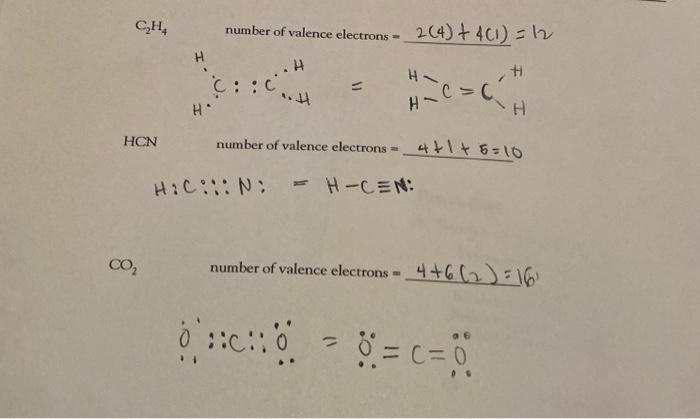 C₂H₄ number of valence electrons = 2(4) + 4(1) = 12
H H H H
C : : C = C = C
H H H H
HCN number of valence electrons = 4+1+5=10
H:C:::N: = H-C≡N:
CO₂ number of valence electrons = 4+6(2)=16
O::C::O = O=C=O